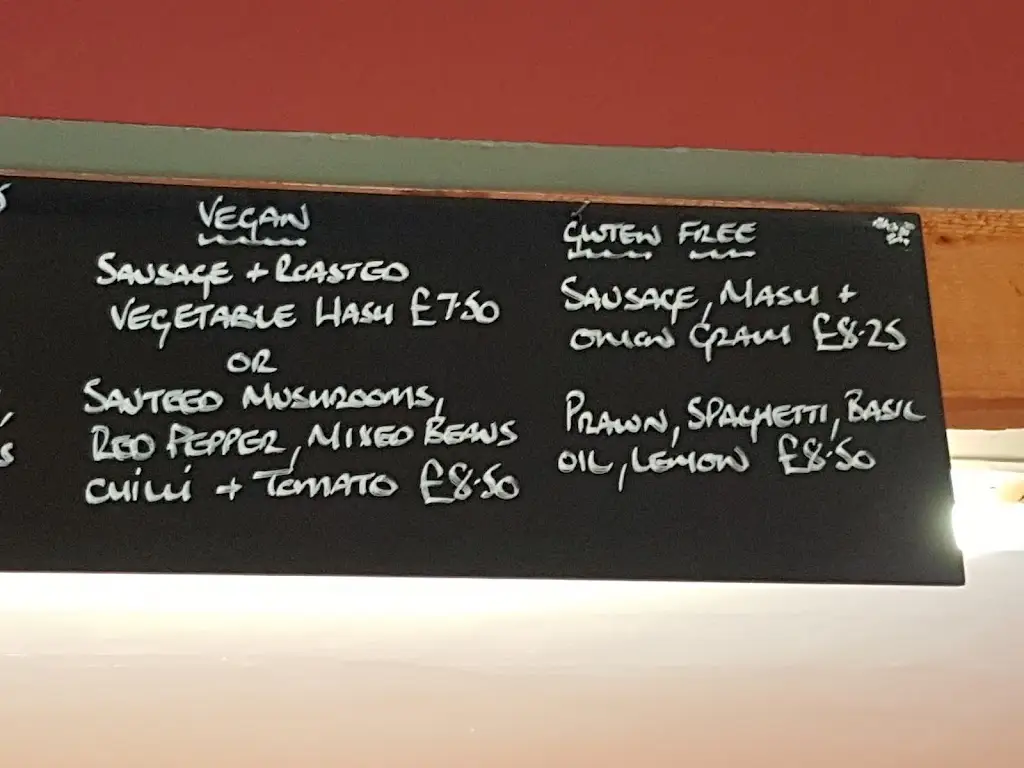 VEGAN
SAUSAGE + ROASTED
VEGETABLE HASH £7.50
OR
SAUTEED MUSHROOMS,
RED PEPPER, MIXED BEANS
CHILLI + TOMATO £8.50
GLUTEN FREE
SAUSAGE, MASH +
ONION GRAVY £8.25
PRAWN, SPAGHETTI, BASIL
OIL, LEMON £8.50